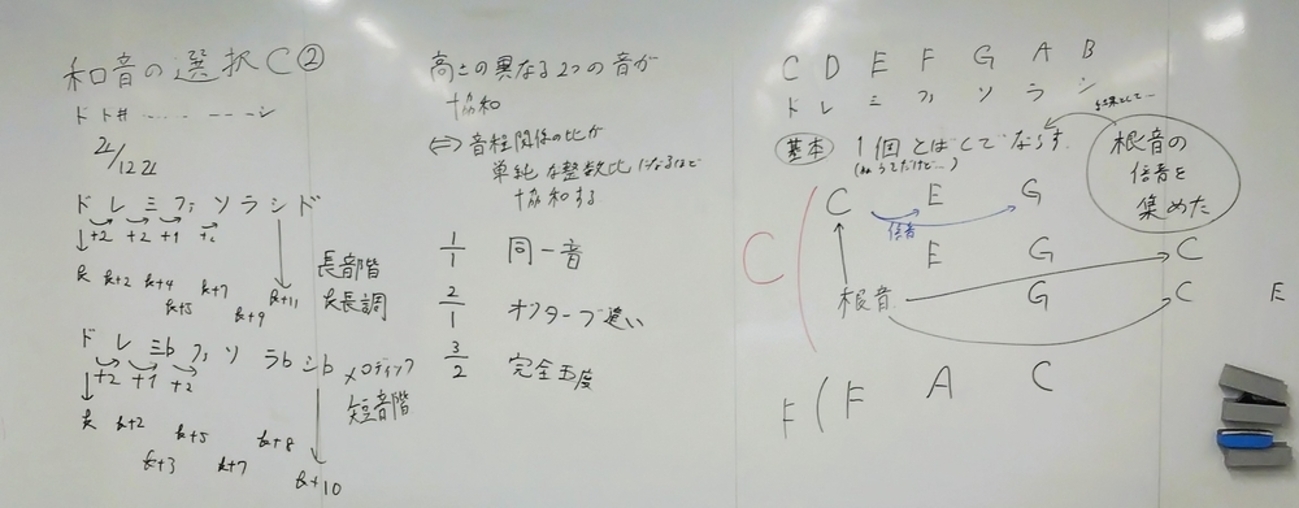 和音の選択C②
ド ド# ..... ---シ
ド レ ミ ファ ソ ラ シ ド
+2 +2 +1
k k+2 k+4 k+5 k+7 k+9 k+11
長音階
長調
ド レ ミb ファ ソ ラb シb
+2 +1 +2
メロディック
短音階
k k+2 k+3 k+5 k+7 k+8 k+10
高さの異なる2つの音が
協和
⇔ 音程関係の比が
単純な整数比になるほど
協和する
1/1 同一音
2/1 オクターブ違い
3/2 完全五度
C D E F G A B
ド レ ミ ファ ソ ラ シ
結果として...
基本 1個とばしでならす
根音の
倍音を
集めた
C C E G
倍音
E G C
根音 G C E
F F A C